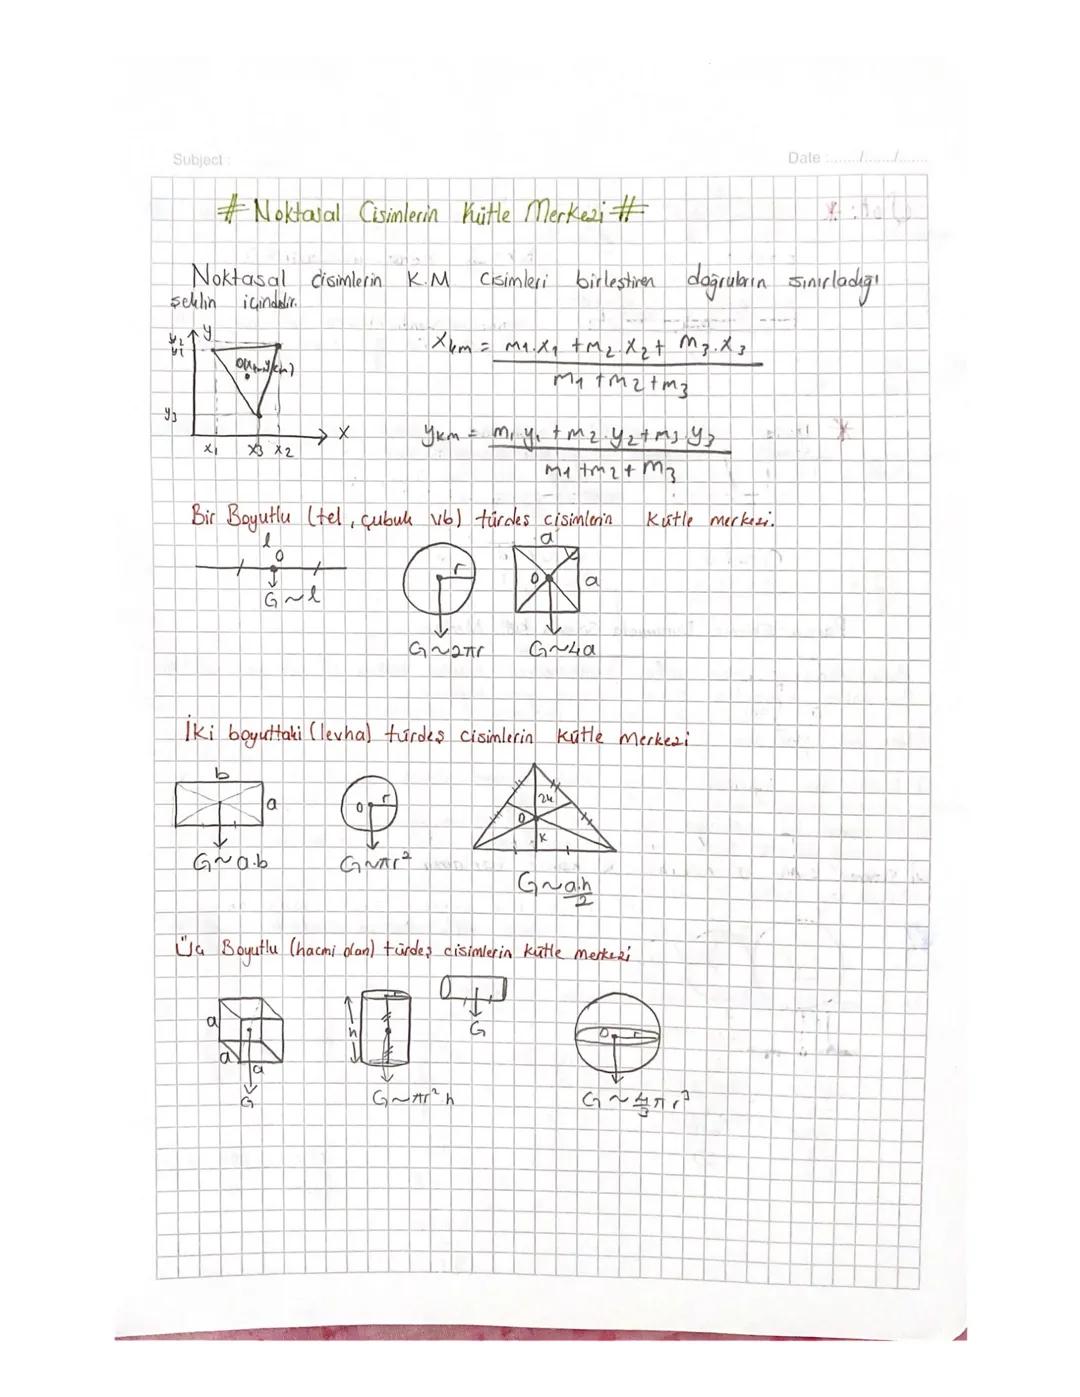 Subject :
Date :......../......../........
# Noktasal Cisimlerin Kütle Merkezi #
Noktasal cisimlerin K.M cisimleri birleştiren doğruların sınırladığı
şeklin içindedir.
y
y2
y1
y3
x1 x3 x2
x
Xkm = m1.x1 + m2.x2 + m3.x3
m1 + m2 + m3
ykm = m1.y1 + m2.y2 + m3.y3
m1 + m2 + m3
Bir Boyutlu (tel, çubuk vb) türdeş cisimlerin Kütle merkezi.
l
O
G~l
r
G~2πr
a
O
a
G~4a
İki boyuttaki (levha) türdeş cisimlerin kütle merkezi
b
a
G~a.b
O r
G~πr²
2k
O
k
G~a.h/2
Üç Boyutlu (hacmi olan) türdeş cisimlerin kütle merkezi
a
a
a
G
h
G~πr²h
G
O r
G~4/3πr³